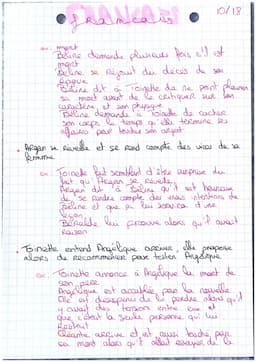 Français
10/13
ex: mort
Béline demande plusieurs fois s'il est
mort
Béline se réjouit du décès de son
Béline dit à Toinette de ne point pleurer
sa mort avant de le critiquer sur son
caractère, et son physique
Béline demande à Toinette de cacher
son corps le temps qu'elle termine ses
affaires pour toucher son argent
• Argan se réveille et se rend compte des vices de sa
femme
ex: Toinette fait semblant d'être surprise du
fait qu'Argan se réveille
Argan dit à Béline qu'il est heureux
de se rendre compte des vraies intentions de
Béline et que ça lui servira d'une
leçon
Béralde lui prouve alors qu'il avait
raison
Toinette entend Angélique arriver, elle propose
alors de recommencer pour tester Angélique
ex: Toinette annonce à Angélique la mort de
son père
Angélique est accablée par la nouvelle
Elle est désespérée de le perdre alors qu'il
y avait des tensions entre eux et
que c'était la seule personne qui lui
restait
Cléante arrive et est aussi touché par
sa mort alors qu'il allait essayer de le